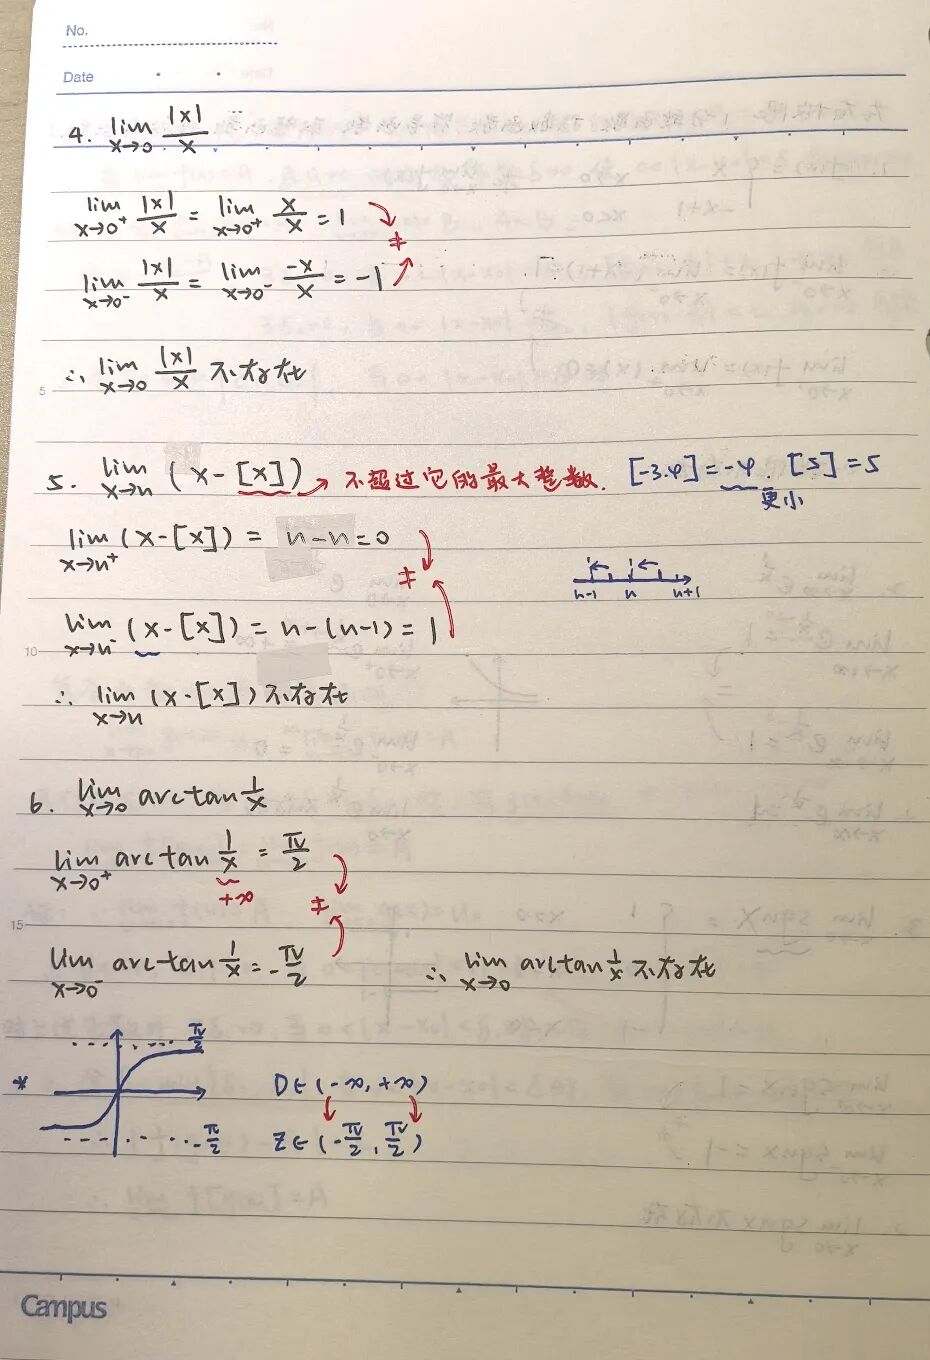 No.
Date
4. lim x→0 |x|/x
lim x→0⁺ |x|/x = lim x→0⁺ x/x = 1
≠
lim x→0⁻ |x|/x = lim x→0⁻ -x/x = -1
∴ lim x→0 |x|/x 不存在
5
5. lim x→n (x-[x]) → 不超过它的最大整数. [-3.4]=-4. [5]=5
更小
lim x→n⁺ (x-[x]) = n-n=0
≠
n-1 n n+1
lim x→n⁻ (x-[x]) = n-(n-1) = 1
10
∴ lim x→n (x-[x]) 不存在
6. lim x→0 arctan 1/x
lim x→0⁺ arctan 1/x = π/2
+∞
≠
15
lim x→0⁻ arctan 1/x = -π/2 ∴ lim x→0 arctan 1/x 不存在
π/2
* D∈(-∞,+∞)
-π/2 Z∈(-π/2,π/2)
Campus